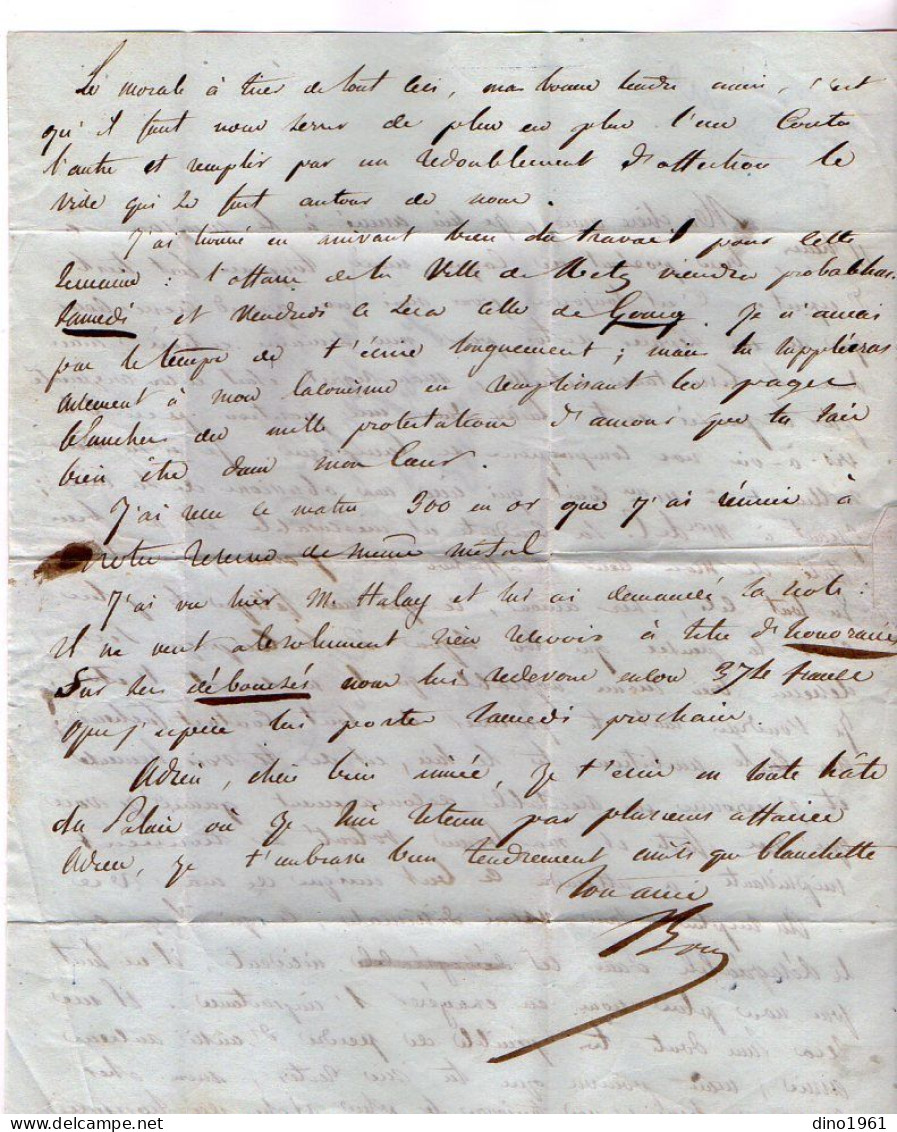 La morale à tirer de tout ceci, ma bonne tendre amie, c'est
qu'il faut nous serrer de plus en plus l'un contre
l'autre et remplir par un redoublement d'affection le
vide qui se fait autour de nous.
J'ai trouvé en arrivant bien du travail pour cette
semaine : l'affaire de la Ville de Metz viendra probablem.
samedi et vendredi ce sera celle de Gourcy. Je n'aurai
pas le temps de t'écrire longuement ; mais tu suppléeras
aisément à mon laconisme en remplissant les pages
blanches des mille protestations d'amour que tu sais
bien être dans mon cœur.
J'ai reçu ce matin 300 en or que j'ai réunis à
notre réserve de même métal
J'ai vu hier M. Halay et lui ai demandé sa note :
il ne veut absolument rien recevoir à titre d'honoraires
Sur ses déboursés nous lui redevons encore 37 francs
que j'espère lui porter samedi prochain.
Adieu, chère bien aimée, je t'écris en toute hâte
du Palais où je suis retenu par plusieurs affaires
Adieu, je t'embrasse bien tendrement ainsi que Blanchette
Ton ami
dino1961